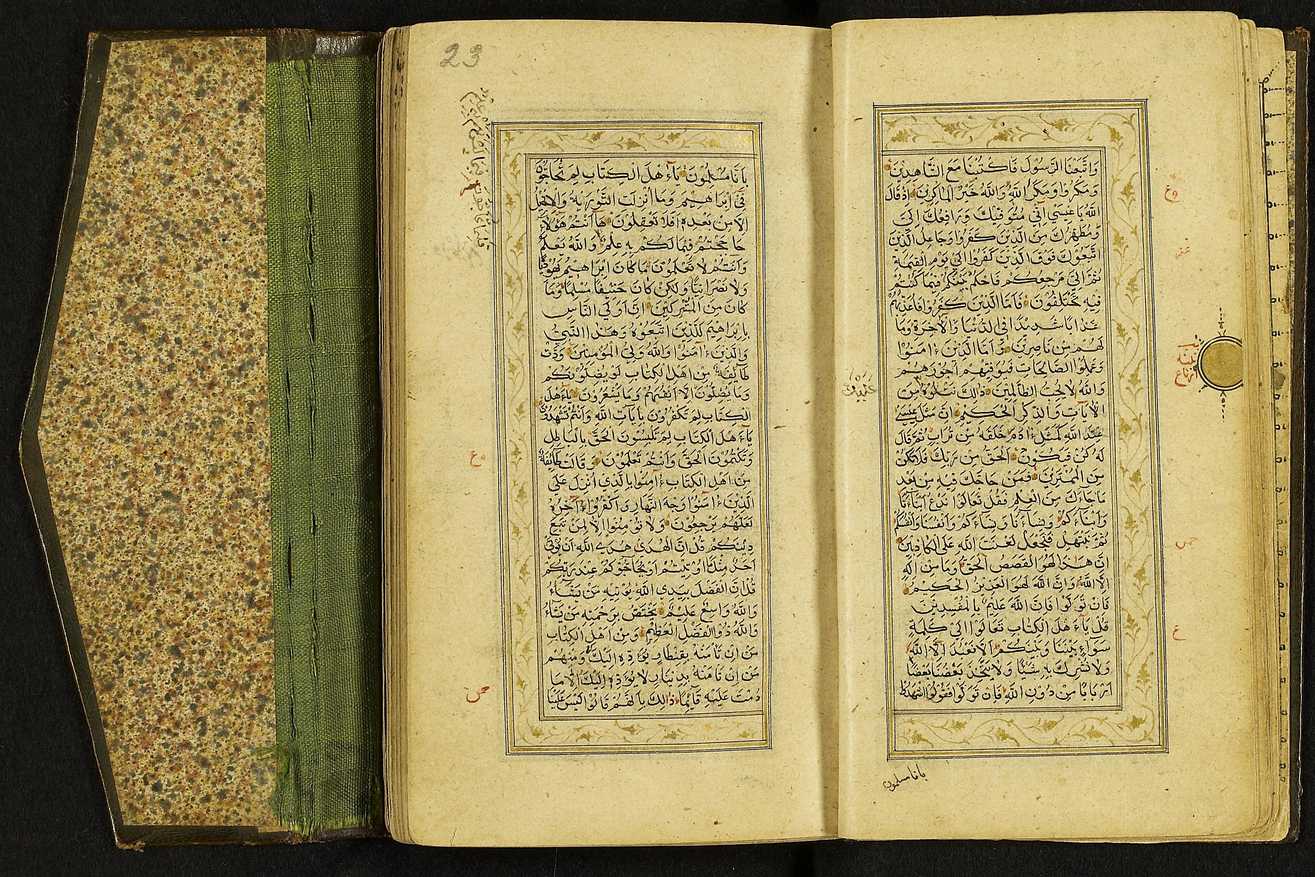 وَاتَّبَعْنَا الرَّسُولَ فَاكْتُبْنَا مَعَ الشَّاهِدِينَ
وَمَكَرُوا وَمَكَرَ اللَّهُ وَاللَّهُ خَيْرُ الْمَاكِرِينَ إِذْ قَالَ
اللَّهُ يَا عِيسَى إِنِّي مُتَوَفِّيكَ وَرَافِعُكَ إِلَيَّ
وَمُطَهِّرُكَ مِنَ الَّذِينَ كَفَرُوا وَجَاعِلُ الَّذِينَ
اتَّبَعُوكَ فَوْقَ الَّذِينَ كَفَرُوا إِلَى يَوْمِ الْقِيمَةِ
ثُمَّ إِلَيَّ مَرْجِعُكُمْ فَأَحْكُمُ بَيْنَكُمْ فِيمَا كُنْتُمْ
فِيهِ تَخْتَلِفُونَ فَأَمَّا الَّذِينَ كَفَرُوا فَأُعَذِّبُهُمْ
عَذَابًا شَدِيدًا فِي الدُّنْيَا وَالْآخِرَةِ وَمَا
لَهُمْ مِنْ نَاصِرِينَ وَأَمَّا الَّذِينَ ءَامَنُوا
وَعَمِلُوا الصَّالِحَاتِ فَيُوَفِّيهِمْ أُجُورَهُمْ
وَاللَّهُ لَا يُحِبُّ الظَّالِمِينَ ذَالِكَ نَتْلُوهُ مِنَ
الْآيَاتِ وَالذِّكْرِ الْحَكِيمِ إِنَّ مَثَلَ عِيسَى
عِنْدَ اللَّهِ كَمَثَلِ ءَادَمَ خَلَقَهُ مِنْ تُرَابٍ ثُمَّ قَالَ
لَهُ كُنْ فَيَكُونُ الْحَقُّ مِنْ رَبِّكَ فَلَا تَكُنْ
مِنَ الْمُمْتَرِينَ فَمَنْ حَاجَّكَ فِيهِ مِنْ بَعْدِ
مَا جَاءَكَ مِنَ الْعِلْمِ فَقُلْ تَعَالَوْا نَدْعُ أَبْنَاءَنَا
وَأَبْنَاءَكُمْ وَنِسَاءَنَا وَنِسَاءَكُمْ وَأَنْفُسَنَا وَأَنْفُسَكُمْ
ثُمَّ نَبْتَهِلْ فَنَجْعَلْ لَعْنَتَ اللَّهِ عَلَى الْكَاذِبِينَ
إِنَّ هَذَا لَهُوَ الْقَصَصُ الْحَقُّ وَمَا مِنْ إِلَهٍ
إِلَّا اللَّهُ وَإِنَّ اللَّهَ لَهُوَ الْعَزِيزُ الْحَكِيمُ
فَإِنْ تَوَلَّوْا فَإِنَّ اللَّهَ عَلِيمٌ بِالْمُفْسِدِينَ
قُلْ يَاءَهْلَ الْكِتَابِ تَعَالَوْا إِلَى كَلِمَةٍ
سَوَاءٍ بَيْنَنَا وَبَيْنَكُمْ أَلَّا نَعْبُدَ إِلَّا اللَّهَ
وَلَا نُشْرِكَ بِهِ شَيْئًا وَلَا يَتَّخِذَ بَعْضُنَا بَعْضًا
أَرْبَابًا مِنْ دُونِ اللَّهِ فَإِنْ تَوَلَّوْا فَقُولُوا اشْهَدُوا
بانا مسلمون
ع
ع
23
بِأَنَّا مُسْلِمُونَ يَاءَهْلَ الْكِتَابِ لِمَ تُحَاجُّونَ
فِي إِبْرَاهِيمَ وَمَا أُنْزِلَتِ التَّوْرَيةُ وَالْإِنْجِيلُ
إِلَّا مِنْ بَعْدِهِ أَفَلَا تَعْقِلُونَ هَا أَنْتُمْ هَؤُلَاءِ
حَاجَجْتُمْ فِيمَا لَكُمْ بِهِ عِلْمٌ وَاللَّهُ يَعْلَمُ
وَأَنْتُمْ لَا تَعْلَمُونَ مَا كَانَ إِبْرَاهِيمُ يَهُودِيًّا
وَلَا نَصْرَانِيًّا وَلَكِنْ كَانَ حَنِيفًا مُسْلِمًا وَمَا
كَانَ مِنَ الْمُشْرِكِينَ إِنَّ أَوْلَى النَّاسِ
بِإِبْرَاهِيمَ لَلَّذِينَ اتَّبَعُوهُ وَهَذَا النَّبِيُّ
وَالَّذِينَ ءَامَنُوا وَاللَّهُ وَلِيُّ الْمُؤْمِنِينَ وَدَّتْ
طَائِفَةٌ مِنْ أَهْلِ الْكِتَابِ لَوْ يُضِلُّونَكُمْ
وَمَا يُضِلُّونَ إِلَّا أَنْفُسَهُمْ وَمَا يَشْعُرُونَ يَاءَهْلَ
الْكِتَابِ لِمَ تَكْفُرُونَ بِآيَاتِ اللَّهِ وَأَنْتُمْ تَشْهَدُونَ
يَاءَهْلَ الْكِتَابِ لِمَ تَلْبِسُونَ الْحَقَّ بِالْبَاطِلِ
وَتَكْتُمُونَ الْحَقَّ وَأَنْتُمْ تَعْلَمُونَ وَقَالَتْ طَائِفَةٌ
مِنْ أَهْلِ الْكِتَابِ ءَامِنُوا بِالَّذِي أُنْزِلَ عَلَى
الَّذِينَ ءَامَنُوا وَجْهَ النَّهَارِ وَاكْفُرُوا ءَاخِرَهُ
لَعَلَّهُمْ يَرْجِعُونَ وَلَا تُؤْمِنُوا إِلَّا لِمَنْ تَبِعَ
دِينَكُمْ قُلْ إِنَّ الْهُدَى هُدَى اللَّهِ أَنْ يُؤْتَى
أَحَدٌ مِثْلَ مَا أُوتِيتُمْ أَوْ يُحَاجُّوكُمْ عِنْدَ رَبِّكُمْ
قُلْ إِنَّ الْفَضْلَ بِيَدِ اللَّهِ يُؤْتِيهِ مَنْ يَشَاءُ
وَاللَّهُ وَاسِعٌ عَلِيمٌ يَخْتَصُّ بِرَحْمَتِهِ مَنْ يَشَاءُ
وَاللَّهُ ذُو الْفَضْلِ الْعَظِيمِ وَمِنْ أَهْلِ الْكِتَابِ
مَنْ إِنْ تَأْمَنْهُ بِقِنْطَارٍ يُؤَدِّهِ إِلَيْكَ وَمِنْهُمْ
مَنْ إِنْ تَأْمَنْهُ بِدِينَارٍ لَا يُؤَدِّهِ إِلَيْكَ إِلَّا مَا
دُمْتَ عَلَيْهِ قَائِمًا ذَالِكَ بِأَنَّهُمْ قَالُوا لَيْسَ عَلَيْنَا